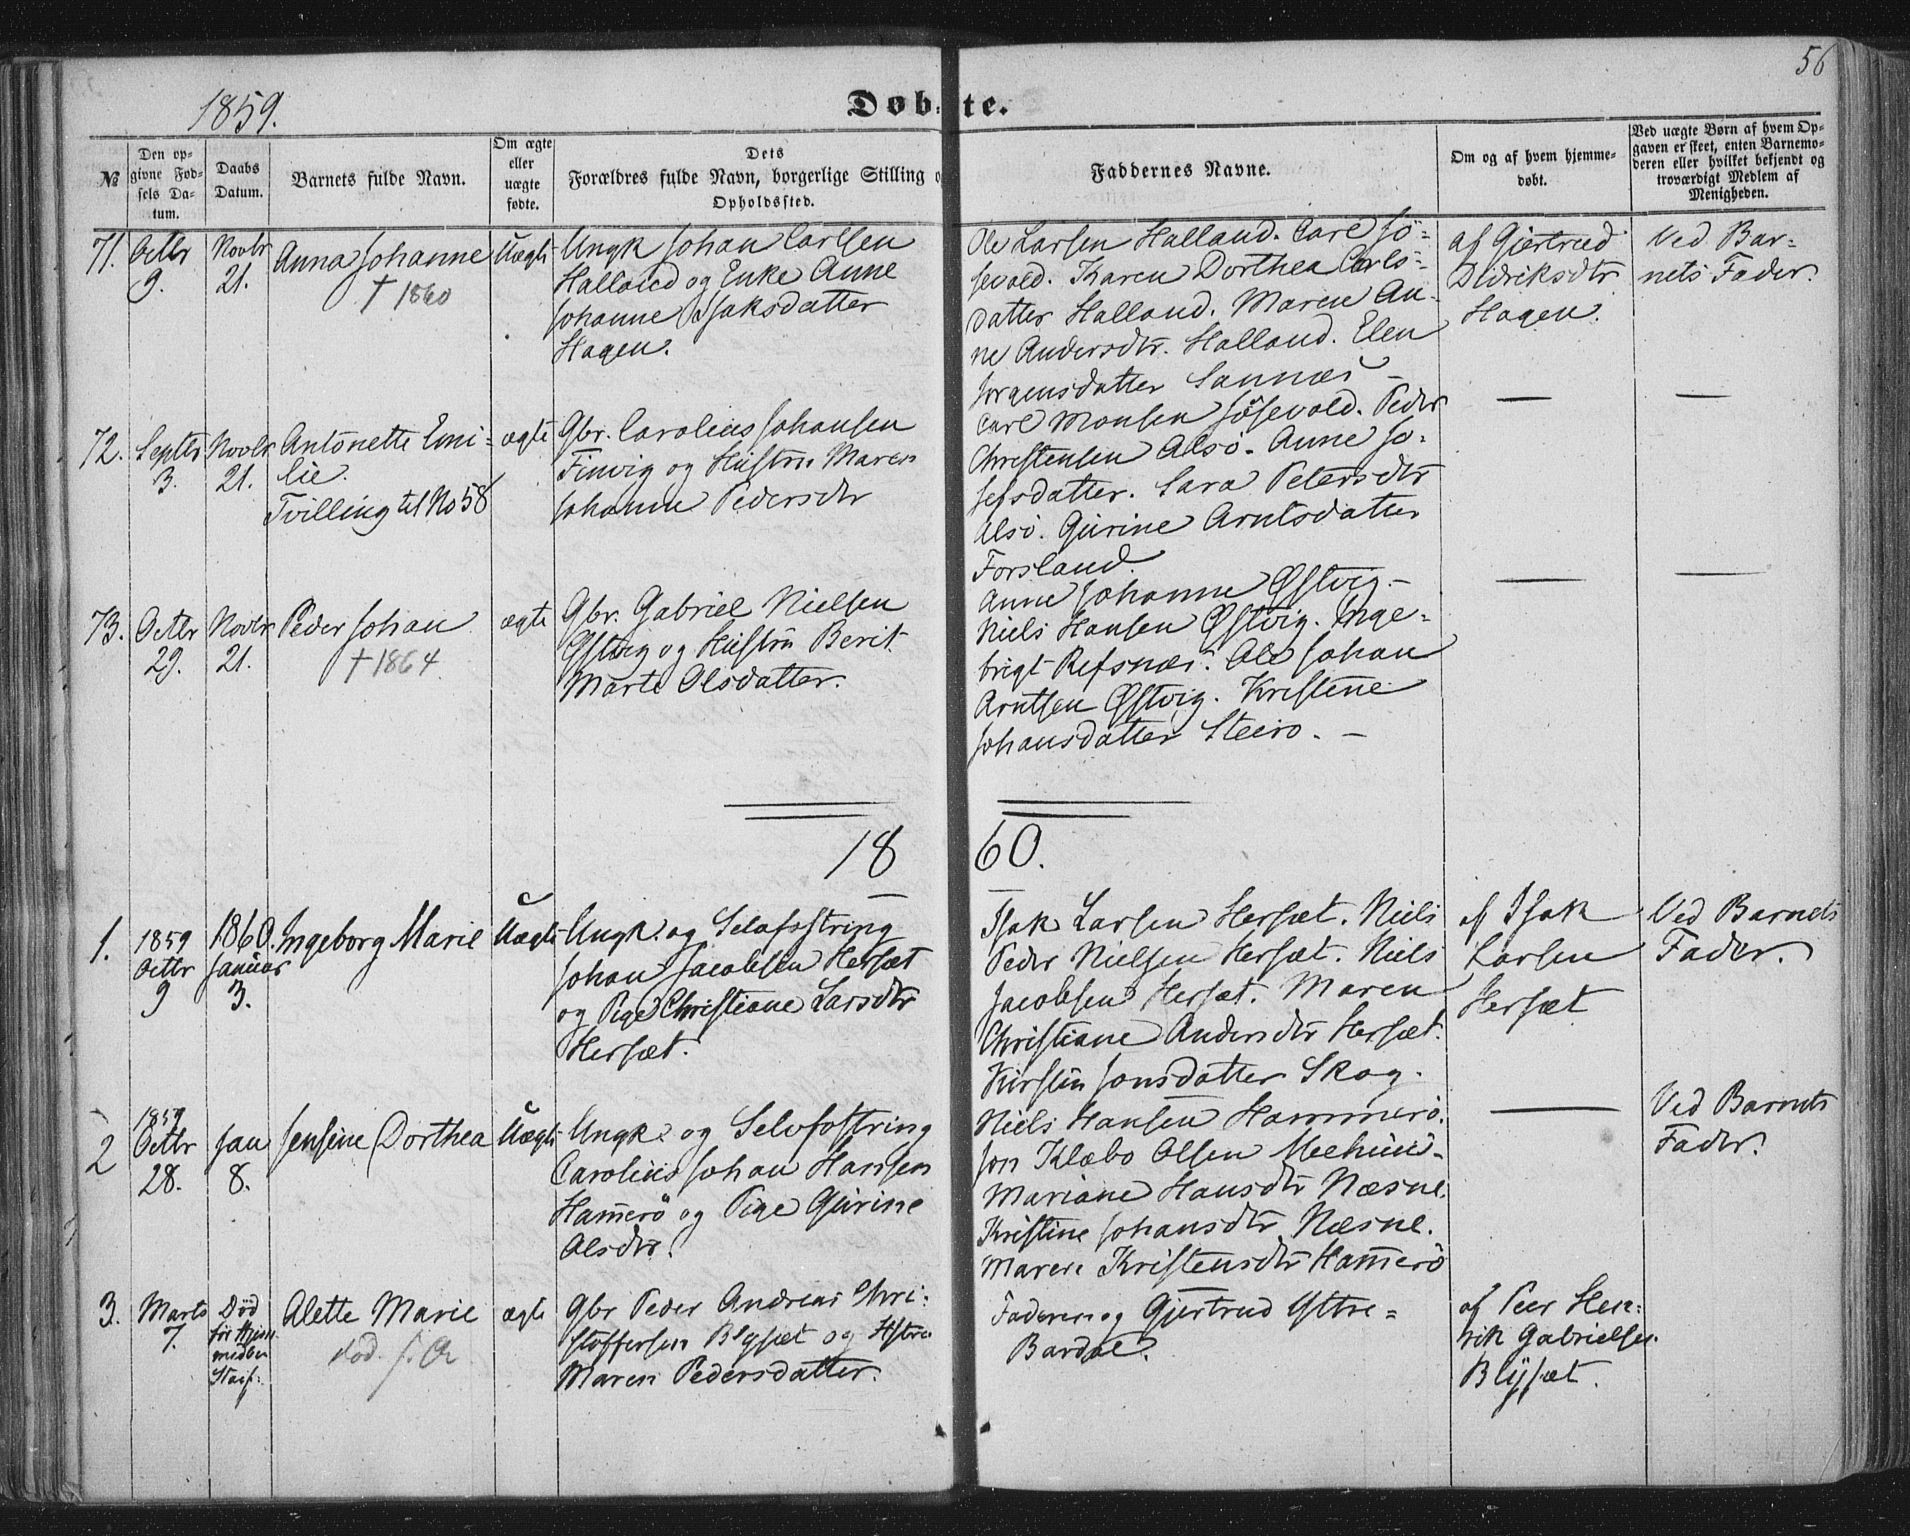 56
1859.
Døbte.
№
Den opgivne Fødsels Datum.
Daabs Datum.
Barnets fulde Navn.
Om ægte eller uægte fødte.
Dets Forældres fulde Navn, borgerlige Stilling o
Opholdssted.
Faddernes Navne.
Om og af hvem hjemmedøbt.
Ved uægte Børn af hvem Opgaven er skeet, enten Barnemoderen eller hvilket bekjendt og troværdigt Medlem af Menigheden.
71.
Octbr
9.
Novbr
21.
Anna Johanne
† 1860
Uægte
Ungk Johan Carlsen
Halland og Enke Anne
Johanne Isaksdatter
Hagen.
Ole Larsen Halland. Carl Jø-
sevold. Karen Dorthea Carls-
datter Halland. Maren An-
ne Andersdtr. Halland. Elen
Jørgensdatter Sannæs
af Gjertrud
Didriksdtr
Hagen.
Ved Bar-
nets Fader.
72.
Septbr
3.
Novbr
21.
Antonette Emi-
lie.
Tvilling til No 58
ægte
Gbr. Carolius Johansen
Finvig og Hustru Maren
Johanna Pedersdtr
Carl Monsen Jøsevold. Peder
Christensen Alsø. Anne Jo-
sefsdatter. Sara Petersdtr
Alsø. Gurine Arntsdatter
Forsland.
73.
Octbr
29.
Novbr
21.
Peder Johan
† 1864
ægte
Gbr. Gabriel Nielsen
Østvig og Hustru Berit
Marte Olsdatter.
Anne Johanne Østvig.
Niels Hansen Østvig. Inge-
brigt Refsnæs. Ole Johan
Arntsen Østvig. Kristine
Johansdatter Steiro.
1860.
1.
1859
Octbr
9
1860.
Januar
3.
Ingeborg Marie
Uægte
Ungk. og Selvfostring
Johan Jacobsen Hersæt
og Pige Christiane Larsdtr
Hersæt.
Isak Larsen Hersæt. Niels
Peder Nielsen Hersæt. Niels
Jacobsen Hersæt. Maren
Christiane Andersdtr Hersæt.
Kirsten Jonsdatter Skog.
af Isak
Larsen
Hersæt
Ved Barnets
Fader.
2
1859
Octbr
28.
Jan
8.
Jensine Dorthea
Uægte
Ungk. og Selvfostring
Carolius Johan Hansen
Hamerø og Pige Gurine
Olsdtr.
Niels Hansen Hammerø.
Jon Klæbo Olsen
Mariane Hansdtr Næsne.
Kristine Johansdtr Næsne.
Maren Kristensdtr Hamerø
Ved Barnets
Fader.
3.
Marts
7.
Død
før
Alette Marie
død
ægte
Gbr Peder Andreas Chri-
stoffersen Blysæt og Hstru
Maren Pedersdatter.
Faderen og Gjertrud Yttre-
Bardal.
af Peer Hen-
rik Gabrielsen
Blysæt.